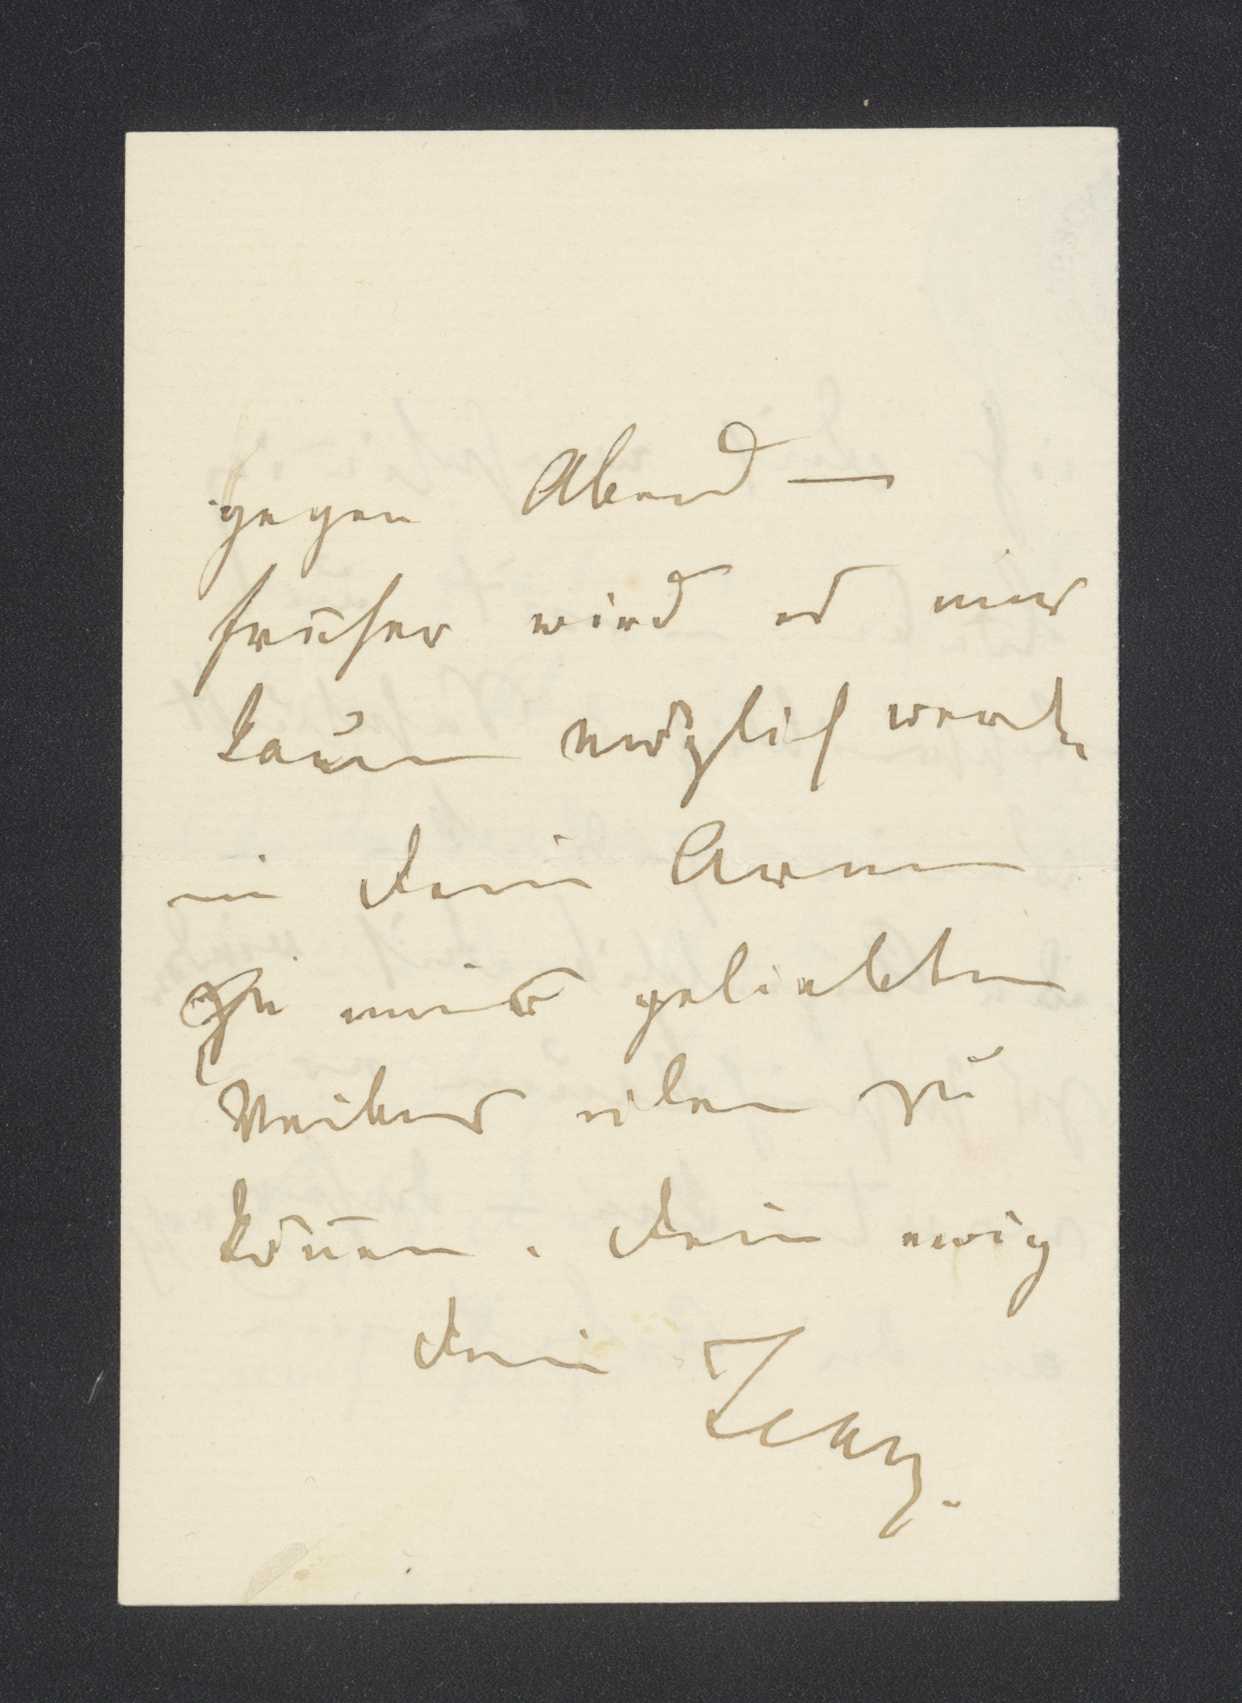 gegen Abend —
früher wird es mir
kaum möglich werden
in die Arme
meines geliebten
Weibes eilen zu
können. Dein ewig
dein Franz.